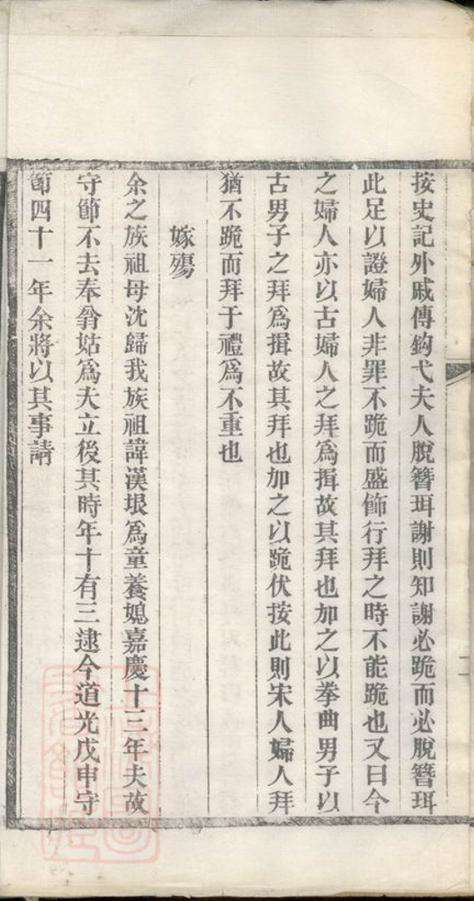 按史記外戚傳鈎弋夫人脫簪珥謝則知謝必跪而必脫簪珥
此足以證婦人非罪不跪而盛飾行拜之時不能跪也又曰今
之婦人亦以古婦人之拜爲揖故其拜也加之以拳曲男子以
古男子之拜爲揖故其拜也加之以跪伏按此則宋人婦人拜
猶不跪而拜于禮爲不重也
嫁殤
余之族祖母沈歸我族祖諱漢垠爲童養媳嘉慶十三年夫故
守節不去奉翁姑爲夫立後其時年十有三逮今道光戊申守
節四十一年余將以其事請
二